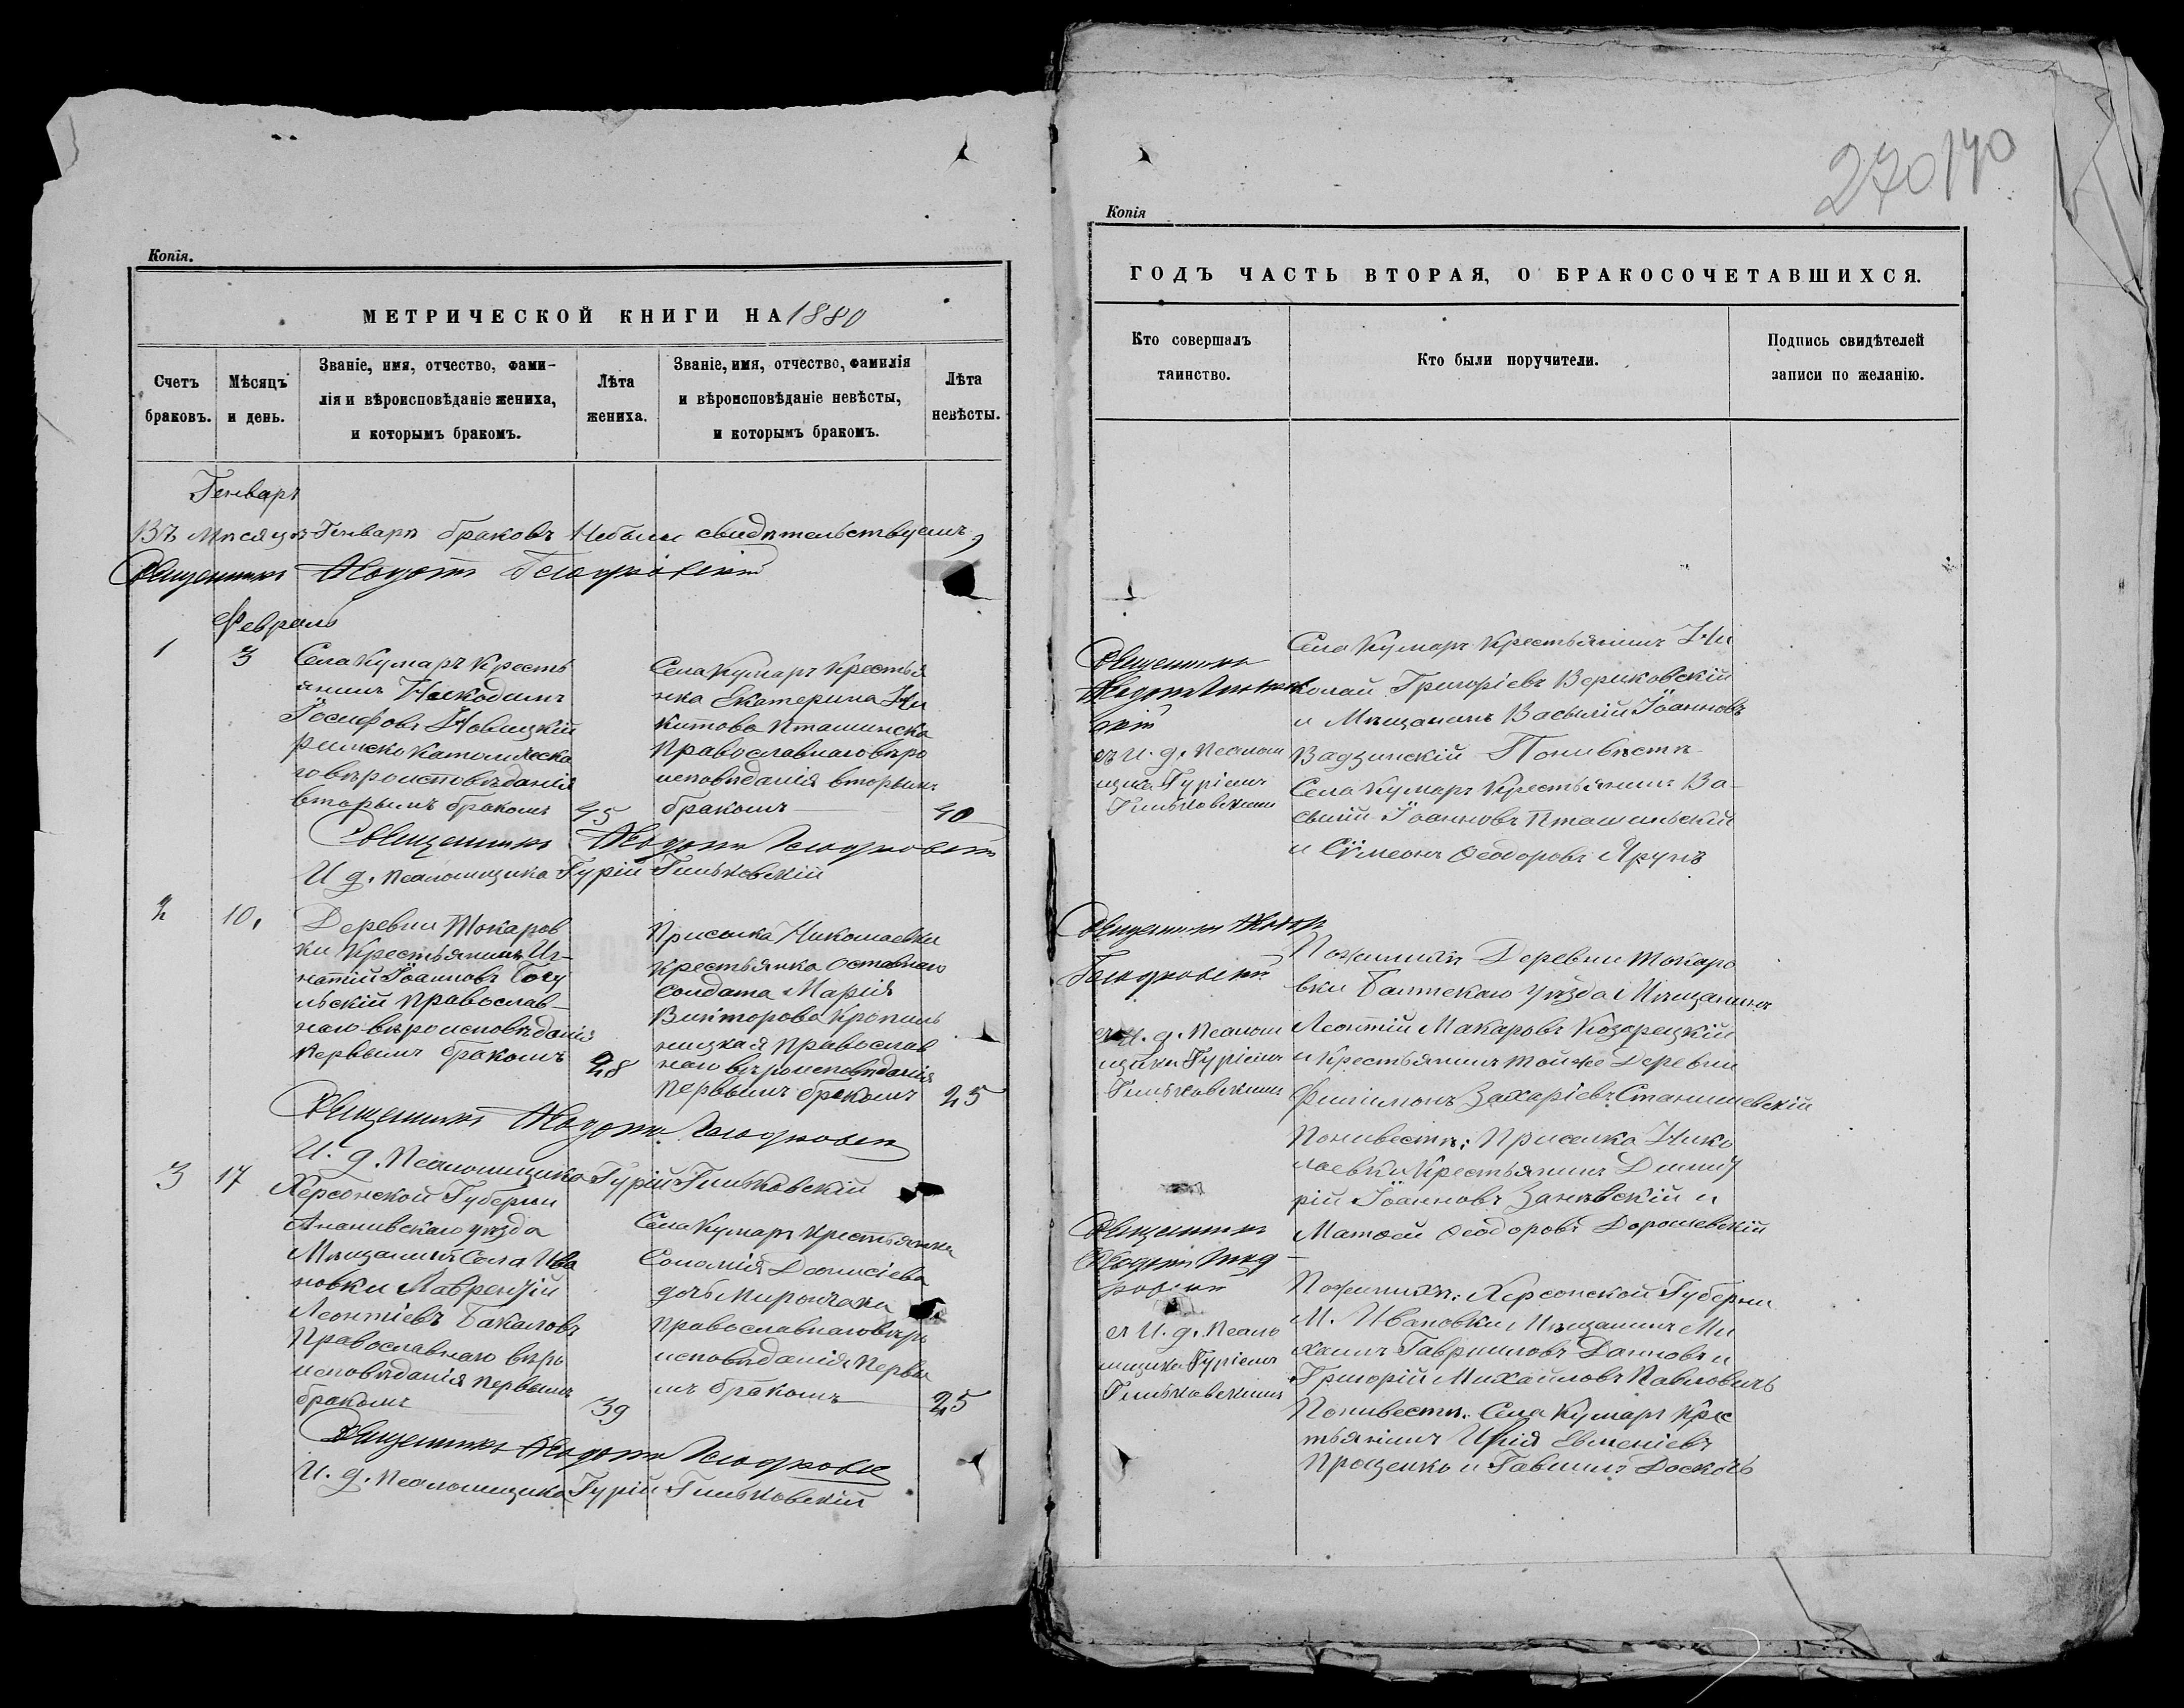 Копія.
МЕТРИЧЕСКОЙ КНИГИ НА 1880
Счетъ браковъ.
Мѣсяцъ и день.
Званіе, имя, отчество, фами-
лія и вѣроисповѣданіе жениха,
и которымъ бракомъ.
Лѣта жениха.
Званіе, имя, отчество, фамилія
и вѣроисповѣданіе невѣсты,
и которымъ бракомъ.
Лѣта невѣсты.
Генварь
Въ мѣсяцѣ Генварѣ браковъ небыли свидѣтельствуемъ,
Священникъ
Февраль
1
3
Села Кумаръ Кресть
янинъ Никодимъ
Іосифовъ Новицкій
римско католическа
го вѣроисповѣданія
вторымъ бракомъ
45
Села Кумаръ Крестья
нка Екатерина Ни
китова Пташинска
Православнаго вѣро
исповѣданія вторымъ
бракомъ
40
Священникъ
И. д. Псаломщика Гурій Гиньковскій
2
10.
Деревни Токаров
ки Крестьянинъ Иг-
натій Іоанновъ
Православ-
наго вѣроисповѣданія
первымъ бракомъ
28
Приселка Николаевки
Крестьянка
Солдата Марія
Викторова
Православ
наго вѣроисповѣданія
первымъ бракомъ
25
Священникъ
И. д. Псаломщика Гурій Гиньковскій
3
17
Херсонской Губерни
Ананивскаго уѣзда
Мѣщанинъ Села Ива
новки Лаврентій
Леонтіевъ Бакаловъ
Православнаго вѣро
исповѣданія первымъ
бракомъ
39
Села Кумаръ Крестьянка
Соломія Діонисіева
дочь
Православнаго вѣро
исповѣданія первы
мъ бракомъ
25
Священникъ
И. д. Псаломщика Гурій Гиньковскій
270
170
Копія
ГОДЪ ЧАСТЬ ВТОРАЯ, О БРАКОСОЧЕТАВШИХСЯ.
Кто совершалъ таинство.
Кто были поручители.
Подпись свидѣтелей
записи по желанію.
Священникъ
съ И. д. Псалом
щика Гуріемъ
Гиньковскимъ
Села Кумаръ Крестьянинъ Ни
колай Григоріевъ Вериковскій
и Мѣщанинъ Василій Іоанновъ
Вадзинскій Поневѣстѣ
Села Кумаръ Крестьянинъ Ва-
силій Іоанновъ Пташинскій
и Сѵмеонъ Ѳеодоровъ Ярунъ
Священникъ
съ И. д. Псалом
щика Гуріемъ
Гиньковскимъ
Поженихѣ Деревни Токаро
вки Балтскаго уѣзда Мѣщанинъ
Леонтій Макаровъ Козарецкій
и Крестьянинъ тойже Деревни
Филимонъ Захаріевъ Станишевскій
Поневестѣ: Приселка Нико
лаевки Крестьянинъ Димит
рій Іоанновъ и
Матѳей Ѳеодоровъ Дорошевскій
Священникъ
съ И. д. Псало
мщика Гуріемъ
Гиньковскимъ
Поженихѣ: Херсонской Губерни
Ивановки Мѣщанинъ Ми
хаилъ Гавриловъ и
Григорій Михайловъ Павловичъ
Поневестѣ: Села Кумаръ Крес
тьянинъ Илія Евменіевъ
Проценко и